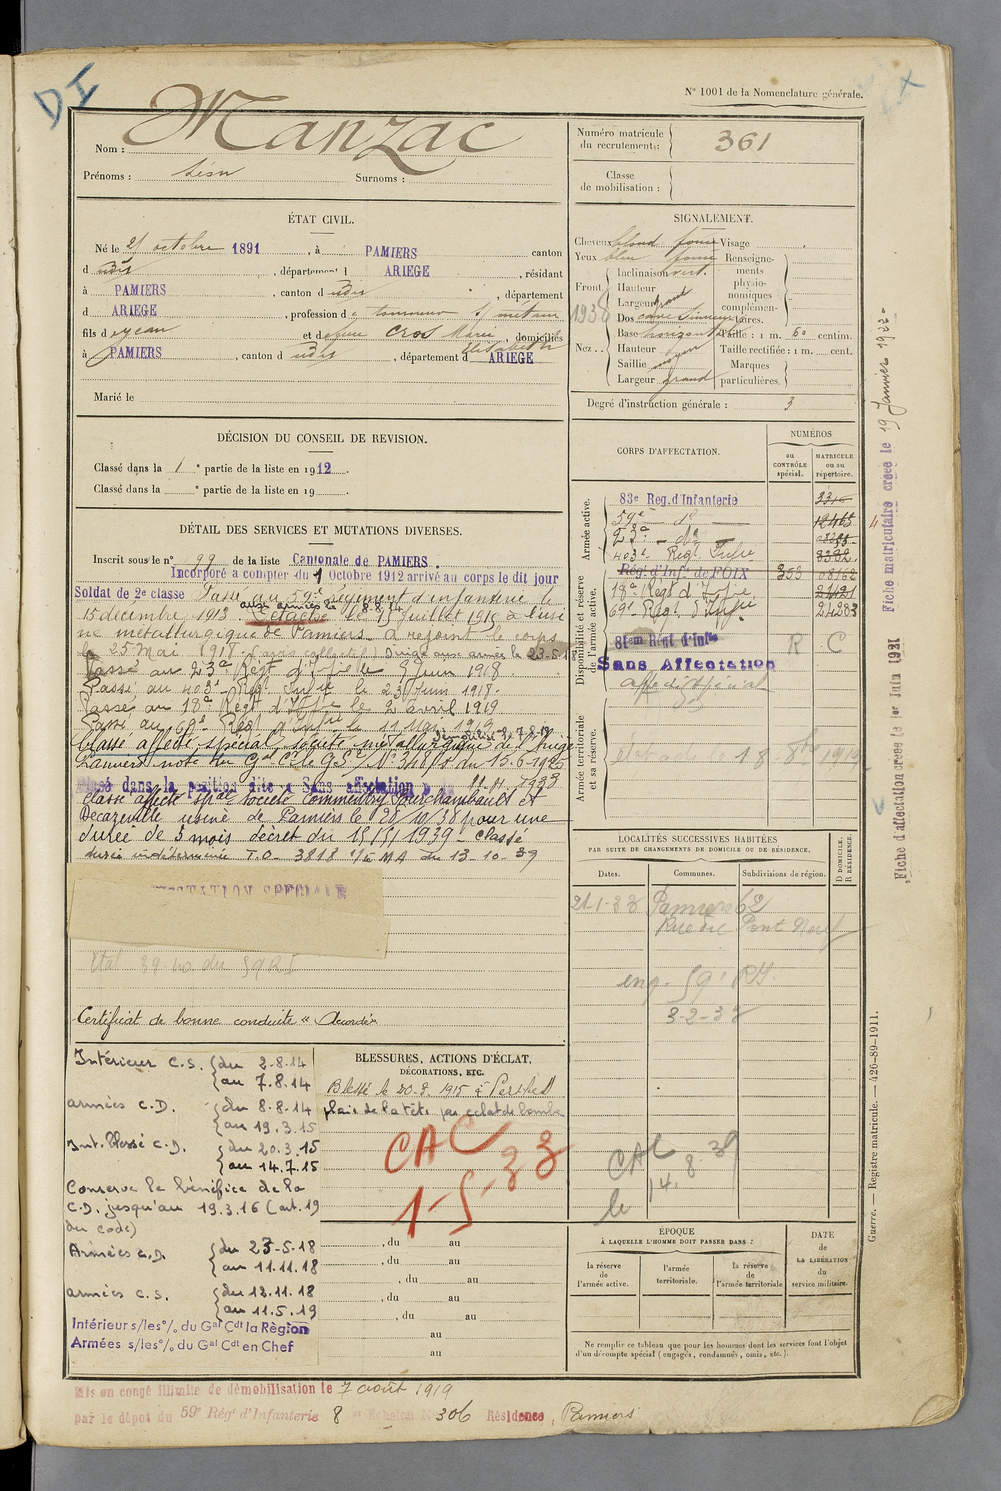 DI
N° 1001 de la Nomenclature générale.
Nom : Manzac
Prénoms : Léon Surnoms :
Numéro matricule du recrutement : 361
Classe de mobilisation :
ÉTAT CIVIL.
Né le 21 octobre 1891, à PAMIERS canton
d udit, département d ARIEGE, résidant
à PAMIERS, canton d udit, département
d ARIEGE, profession d e tourneur s/ métaux
fils d e Jean et d e feue Cros Marie Elisabeth domiciliés
à PAMIERS, canton d udit, département d ARIEGE
Marié le
SIGNALEMENT.
Cheveux blond foncé Visage
Yeux bleu foncé Renseignements physionomiques complémentaires.
Front Inclinaison vert.
Hauteur
Largeur grand
1938
Nez Dos cave sinueux
Base horizontale Taille : 1 m. 60 centim.
Hauteur Taille rectifiée : 1 m. cent.
Saillie moyen Marques particulières.
Largeur grand
Degré d'instruction générale : 3
DÉCISION DU CONSEIL DE REVISION.
Classé dans la 1e partie de la liste en 1912.
Classé dans la e partie de la liste en 19
DÉTAIL DES SERVICES ET MUTATIONS DIVERSES.
Inscrit sous le n° 99 de la liste Cantonale de PAMIERS.
Incorporé a compter du 1 Octobre 1912 arrivé au corps le dit jour
Soldat de 2e classe Passé au 59e régiment d'infanterie le
15 décembre 1913 aux armées le 8.8.14 Détaché le 15 juillet 1915 à l'usi
ne métallurgique de Pamiers. A rejoint le corps
le 25 Mai 1918 Dirigé aux armées le 23-5-18
Passé au 23e Régt d'Infie le 9 Juin 1918
Passé au 403e Régt Infie le 23 Juin 1918.
Passé au 18e Régt d'Infie le 3 avril 1919
Passé au 69e Régt d'Infie le 11 Mai 1919
Classé affecté spécial, société métallurgique de l'Ariège
Pamiers note du Gal Ct le 17e du 15-6-1925
Placé dans la position dite « Sans affectation » 1933
Classé affecté spal Société Commentry Fourchambault et
Decazeville usine de Pamiers le 28/10/38 pour une
durée de 3 mois décret du 1939 Classé
durée indéterminée T.O. 3818 MA du 13-10-39
Certificat de bonne conduite « Accordé »
CORPS D'AFFECTATION.
NUMÉROS
au CONTRÔLE spécial.
MATRICULE ou au répertoire.
Armée active.
83e Reg. d'Infanterie
59e — d° —
23e — d° —
403e Régt Infie
Disponibilité et réserve de l'armée active.
Régt d'Infie de FOIX 353 08162
18e Régt d'Infie
69e Régt d'Infie 24283
81em Régt. d'Infie R C
Sans Affectation
Affecté Spécial
Armée territoriale et sa réserve.
LOCALITÉS SUCCESSIVES HABITÉES
PAR SUITE DE CHANGEMENTS DE DOMICILE OU DE RÉSIDENCE.
Dates. Communes. Subdivisions de région. D DOMICILE. R RÉSIDENCE.
21-1-38 Pamiers 62
Rue du Pont Neuf
3-2-38
CAC le 14.8.39
Intérieur C.S. du 2-8-14 au 7.8.14
armées C.D. du 8.8.14 au 19.3.15
Int. Blessé C.D. du 20.3.15 au 14.7.15
Conserve le bénéfice de la
C.D. jusqu'au 19.3.16 (art. 19
du code)
Armées C.D. du 23-5-18 au 11.11.18
armées C.S. du 12.11.18 au 11.5.19
Intérieur s/les % du Gal Cdt la Règion
Armées s/les % du Gal Cdt en Chef
BLESSURES, ACTIONS D'ÉCLAT.
DÉCORATIONS, ETC.
Blessé le 20.3.1915 à Perthes
plaie de la tête par éclat de bombe
CAC
1-5-33
, du au
, du au
, du au
, du au
au
au
ÉPOQUE
À LAQUELLE L'HOMME DOIT PASSER DANS :
la réserve de l'armée active. l'armée territoriale. la réserve de l'armée territoriale
DATE de LA LIBÉRATION du service militaire.
Ne remplir ce tableau que pour les hommes dont les services font l'objet
d'un décompte spécial (engagés, condamnés, omis, etc.).
Mis en congé illimité de démobilisation le 7 août 1919
par le dépot du 59e Rég' d'Infanterie 8e Echelon N° 306 Résidence, Pamiers
Fiche matriculaire creee le 19 Janvier 1933
Fiche d'affectation creee le 1er Juin 1921
Guerre. — Registre matricule. — 426-89-1911.